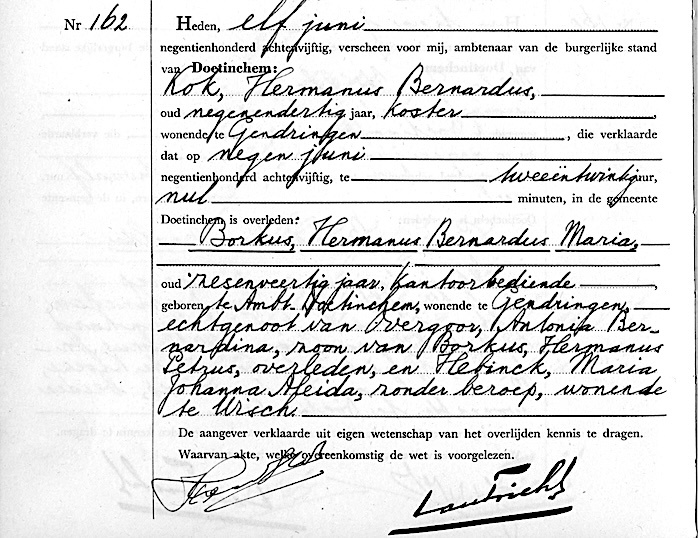 Nr 162
Heden, elf juni
negentienhonderd achtenvijftig, verscheen voor mij, ambtenaar van de burgerlijke stand
van Doetinchem:
Kok, Hermanus Bernardus,
oud negenendertig jaar, koster,
wonende te Gendringen, die verklaarde
dat op negen juni
negentienhonderd achtenvijftig, te tweeëntwintig uur,
nul minuten, in de gemeente
Doetinchem is overleden:
Borkus, Hermanus Bernardus Maria,
oud zesenveertig jaar, kantoorbediende,
geboren te Ambt-Doetinchem, wonende te Gendringen,
echtgenoot van Overgoor, Antonia Ber-
nardina, zoon van Borkus, Hermanus
Petrus, overleden, en Hebinck, Maria
Johanna Aleida, zonder beroep, wonende
te Wisch.
De aangever verklaarde uit eigen wetenschap van het overlijden kennis te dragen.
Waarvan akte, welke overeenkomstig de wet is voorgelezen.